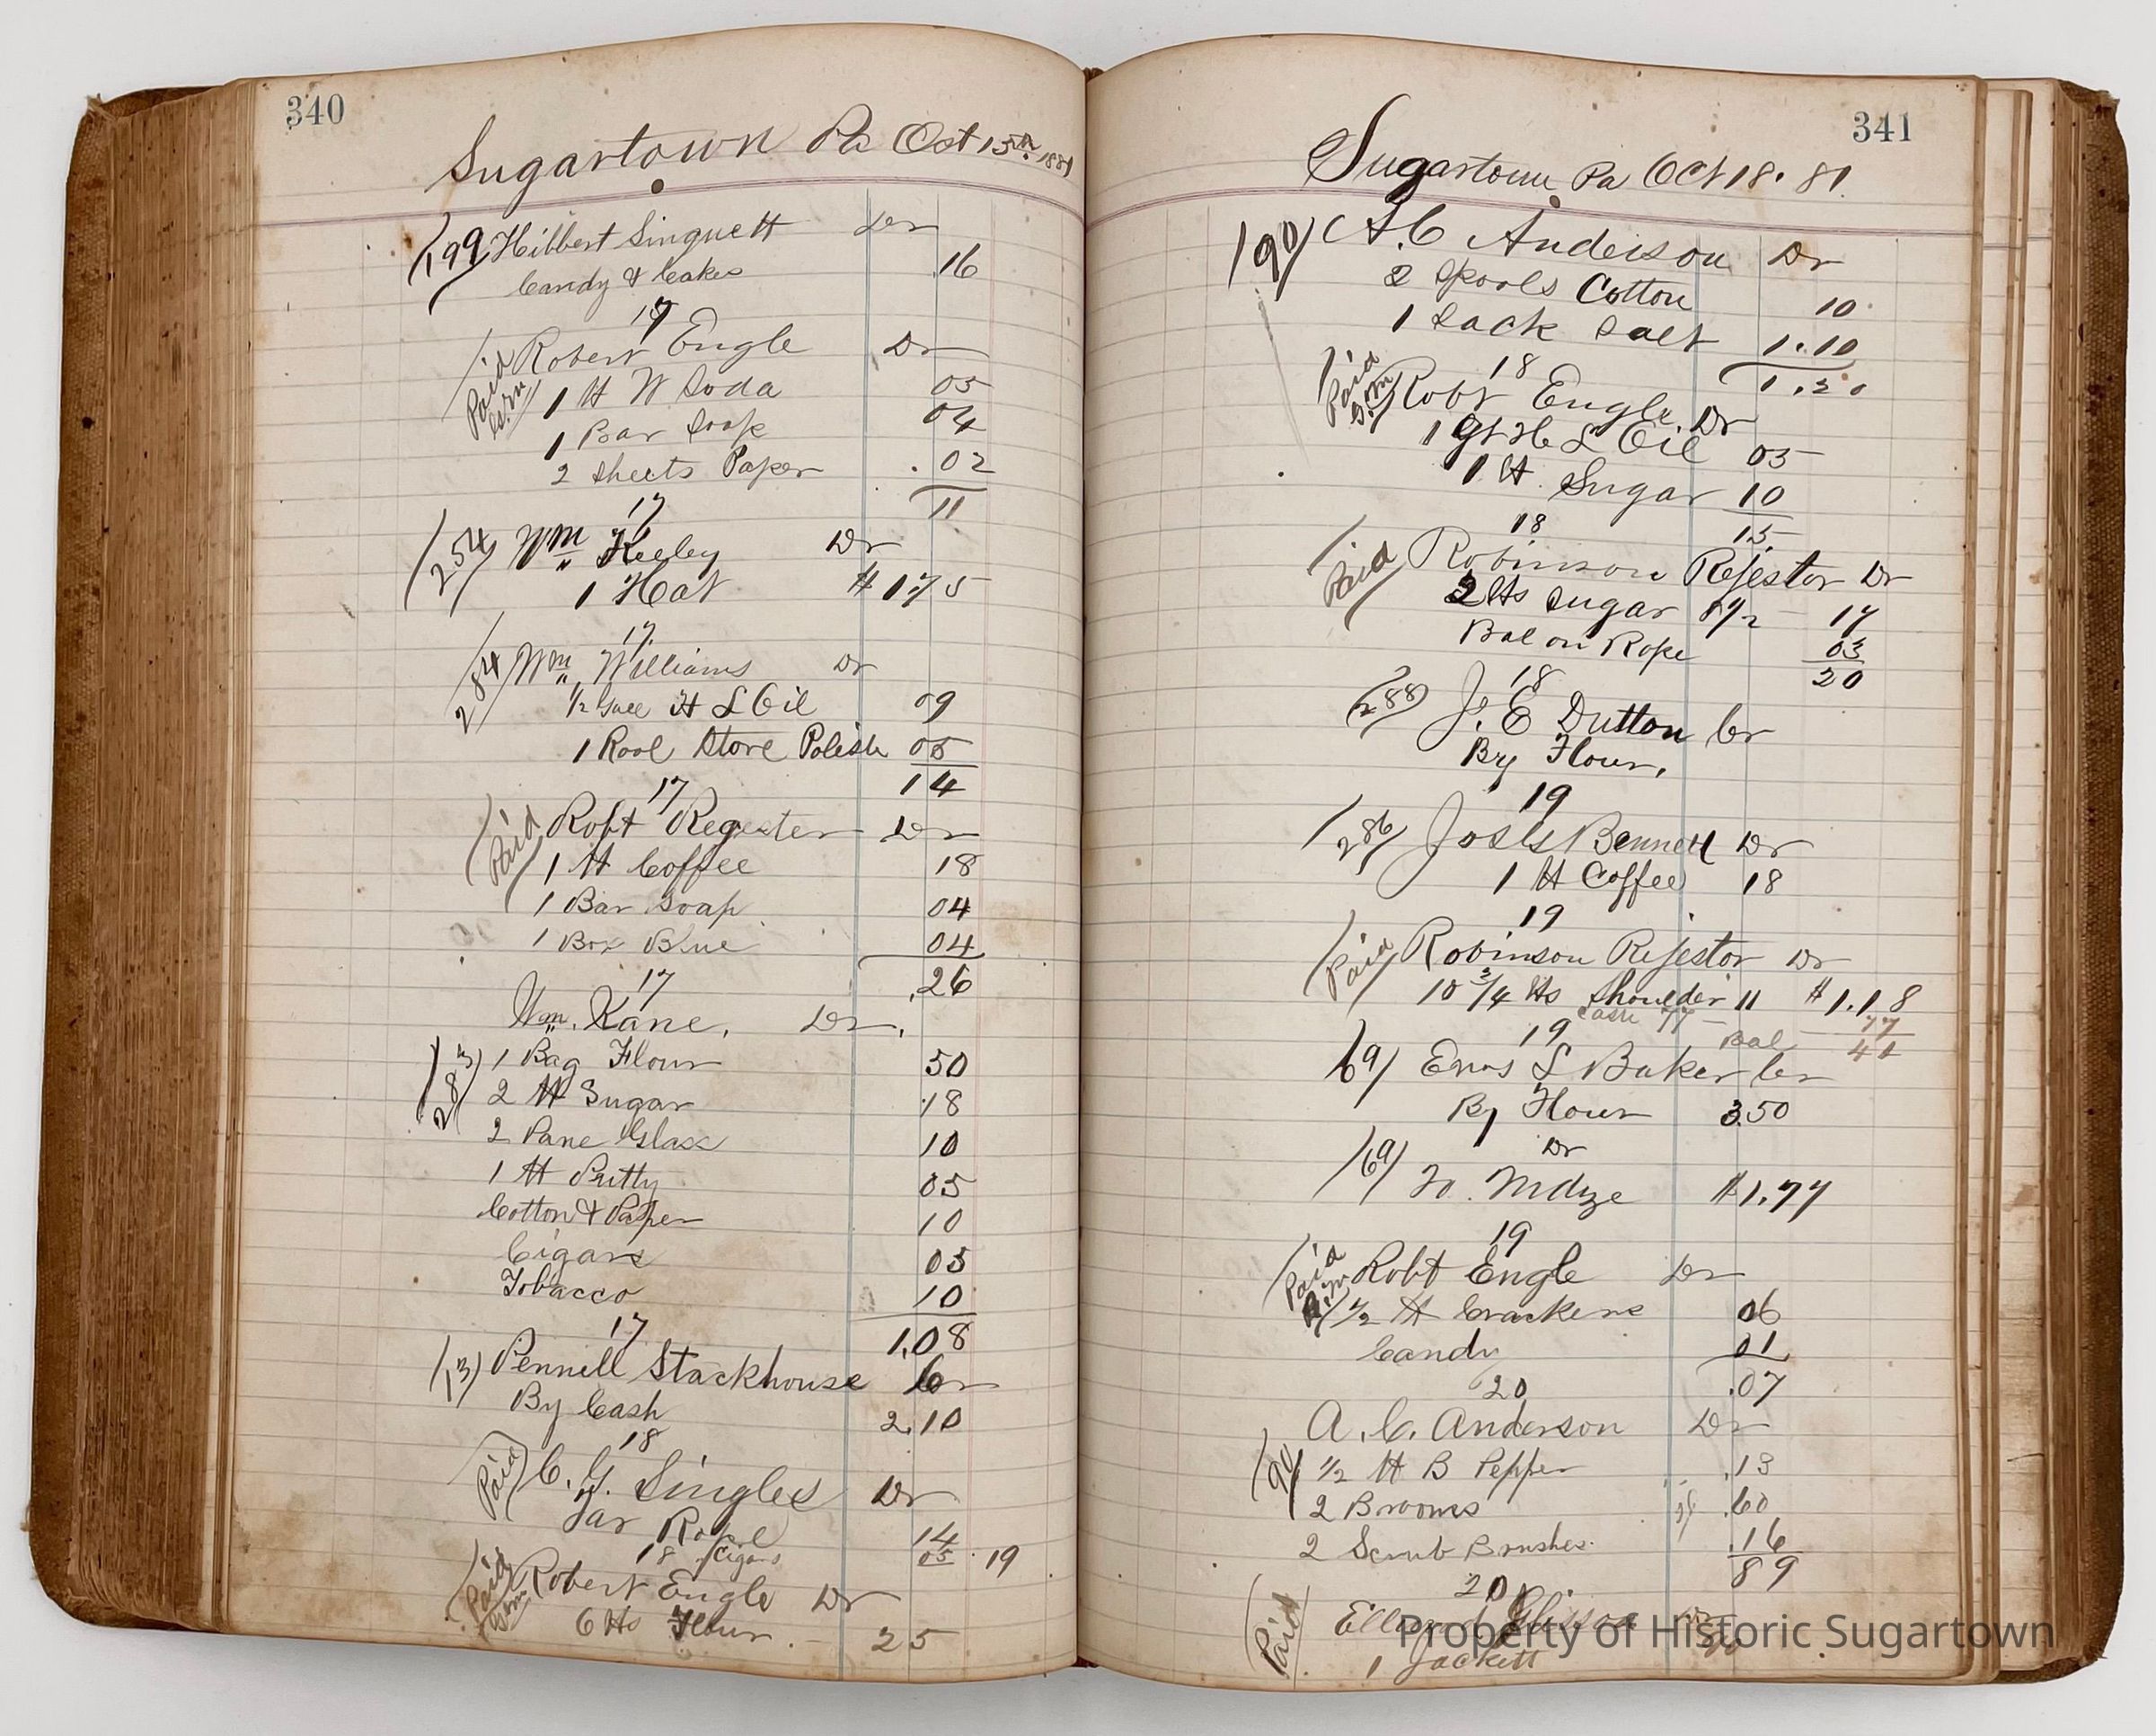 340
Sugartown Pa Oct 15th 1881
199 Hibbert Singuett Dr
Candy & Cakes .16
17
Paid Robert Engle Dr
1 lb W Soda 05
1 Bar Soap 04
2 sheets Paper .02
11
17
254 Wm Keeley Dr
1 Hat $ 1 75
17
284 Wm Williams Dr
1/2 Gall H L Oil 09
1 Rool Stove Polish 05
14
17
Paid Robt Regester Dr
1 lb Coffee 18
1 Bar Soap 04
1 Box Blue 04
.26
17
Wm. Kane, Dr.
283 1 Bag Flour 50
2 lb Sugar 18
2 Pane Glass 10
1 lb Putty 05
Cotton & Paper 10
Cigars 05
Tobacco 10
1.08
17
13 Pennell Stackhouse Cr
By Cash 2.10
18
Paid C. G. Singles Dr
Jar Rope 14
Cigars 05 19
18
Paid Robert Engle Dr
6 lbs Flour. 25
341
Sugartown Pa Oct 18. 81
90 A. C Anderson Dr
2 Spools Cotton 10
1 Sack Salt 1.10
1.20
18
Paid Robt Engle. Dr
1 qt H L Oil 05
1 lb Sugar 10
15
18
Paid Robinson Rejestor Dr
2 lbs Sugar 8 1/2 17
Bal on Rope 03
20
18
288 J. E Dutton Cr
By Flour,
19
286 Jos Bennett Dr
1 lb Coffee 18
19
Paid Robinson Rejestor Dr
10 3/4 lbs Shoulder 11 $1.18
Cash 77 77
Bal 41
19
69 Enos L Baker Cr
By Flour 3.50
69 Dr
To Mdze $1.77
19
Paid Robt Engle Dr
1/2 lb Crackers 06
Candy 01
.07
20
A. C. Anderson Dr
90 1/2 lb B Pepper .13
2 Brooms .60
2 Scrub Brushes. .16
89
20
Paid Ellwood Dr
1 Jackett
Property of Historic Sugartown